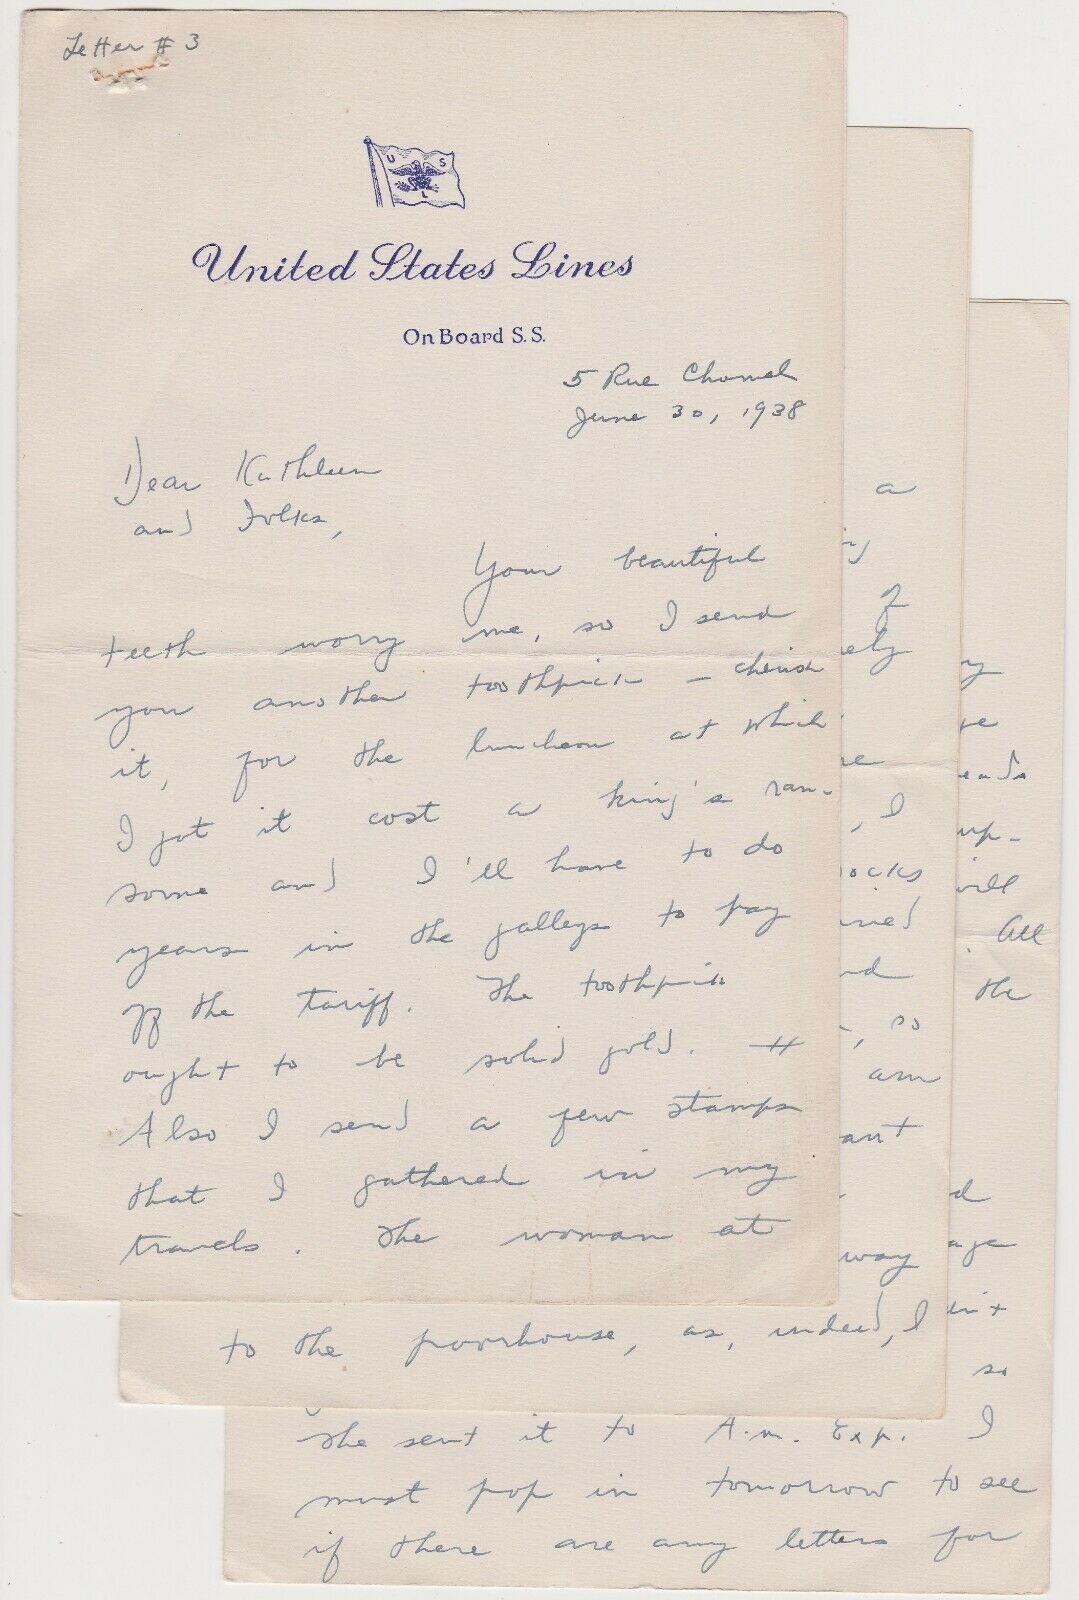 Letter # 3
U S L
United States Lines
On Board S.S.
5 Rue Chomel
June 30, 1938
Dear Kathleen
and Folks,
Your beautiful
teeth worry me, so I send
you another toothpick – cherish
it, for the luncheon at which
I got it cost a king's ran-
some and I'll have to do
years in the galleys to pay
off the tariff. The toothpick
ought to be solid gold. #
Also I send a few stamps
that I gathered in my
travels. The woman at
a
of
ely
I
ocks
so
am
way
to the poorhouse, as, indeed, I
up-
will
All
the
so
She sent it to Am. Exp. I
must pop in tomorrow to see
if there are any letters for